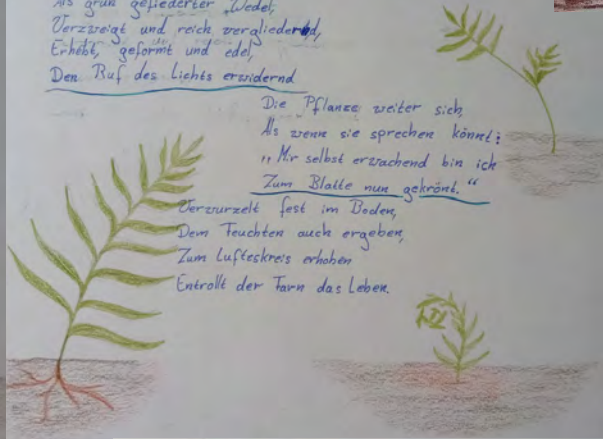 Als grün gefiederter Wedel,
Verzweigt und reich vergliedernd,
Erhebt, geformt und edel,
Den Ruf des Lichts erwidernd
Die Pflanze weiter sich,
Als wenn sie sprechen könnt:
„Mir selbst erwachend bin ich
Zum Blatte nun gekrönt."
Verwurzelt fest im Boden,
Dem Feuchten auch ergeben,
Zum Lufteskreis erhoben
Entrollt der Farn das Leben.